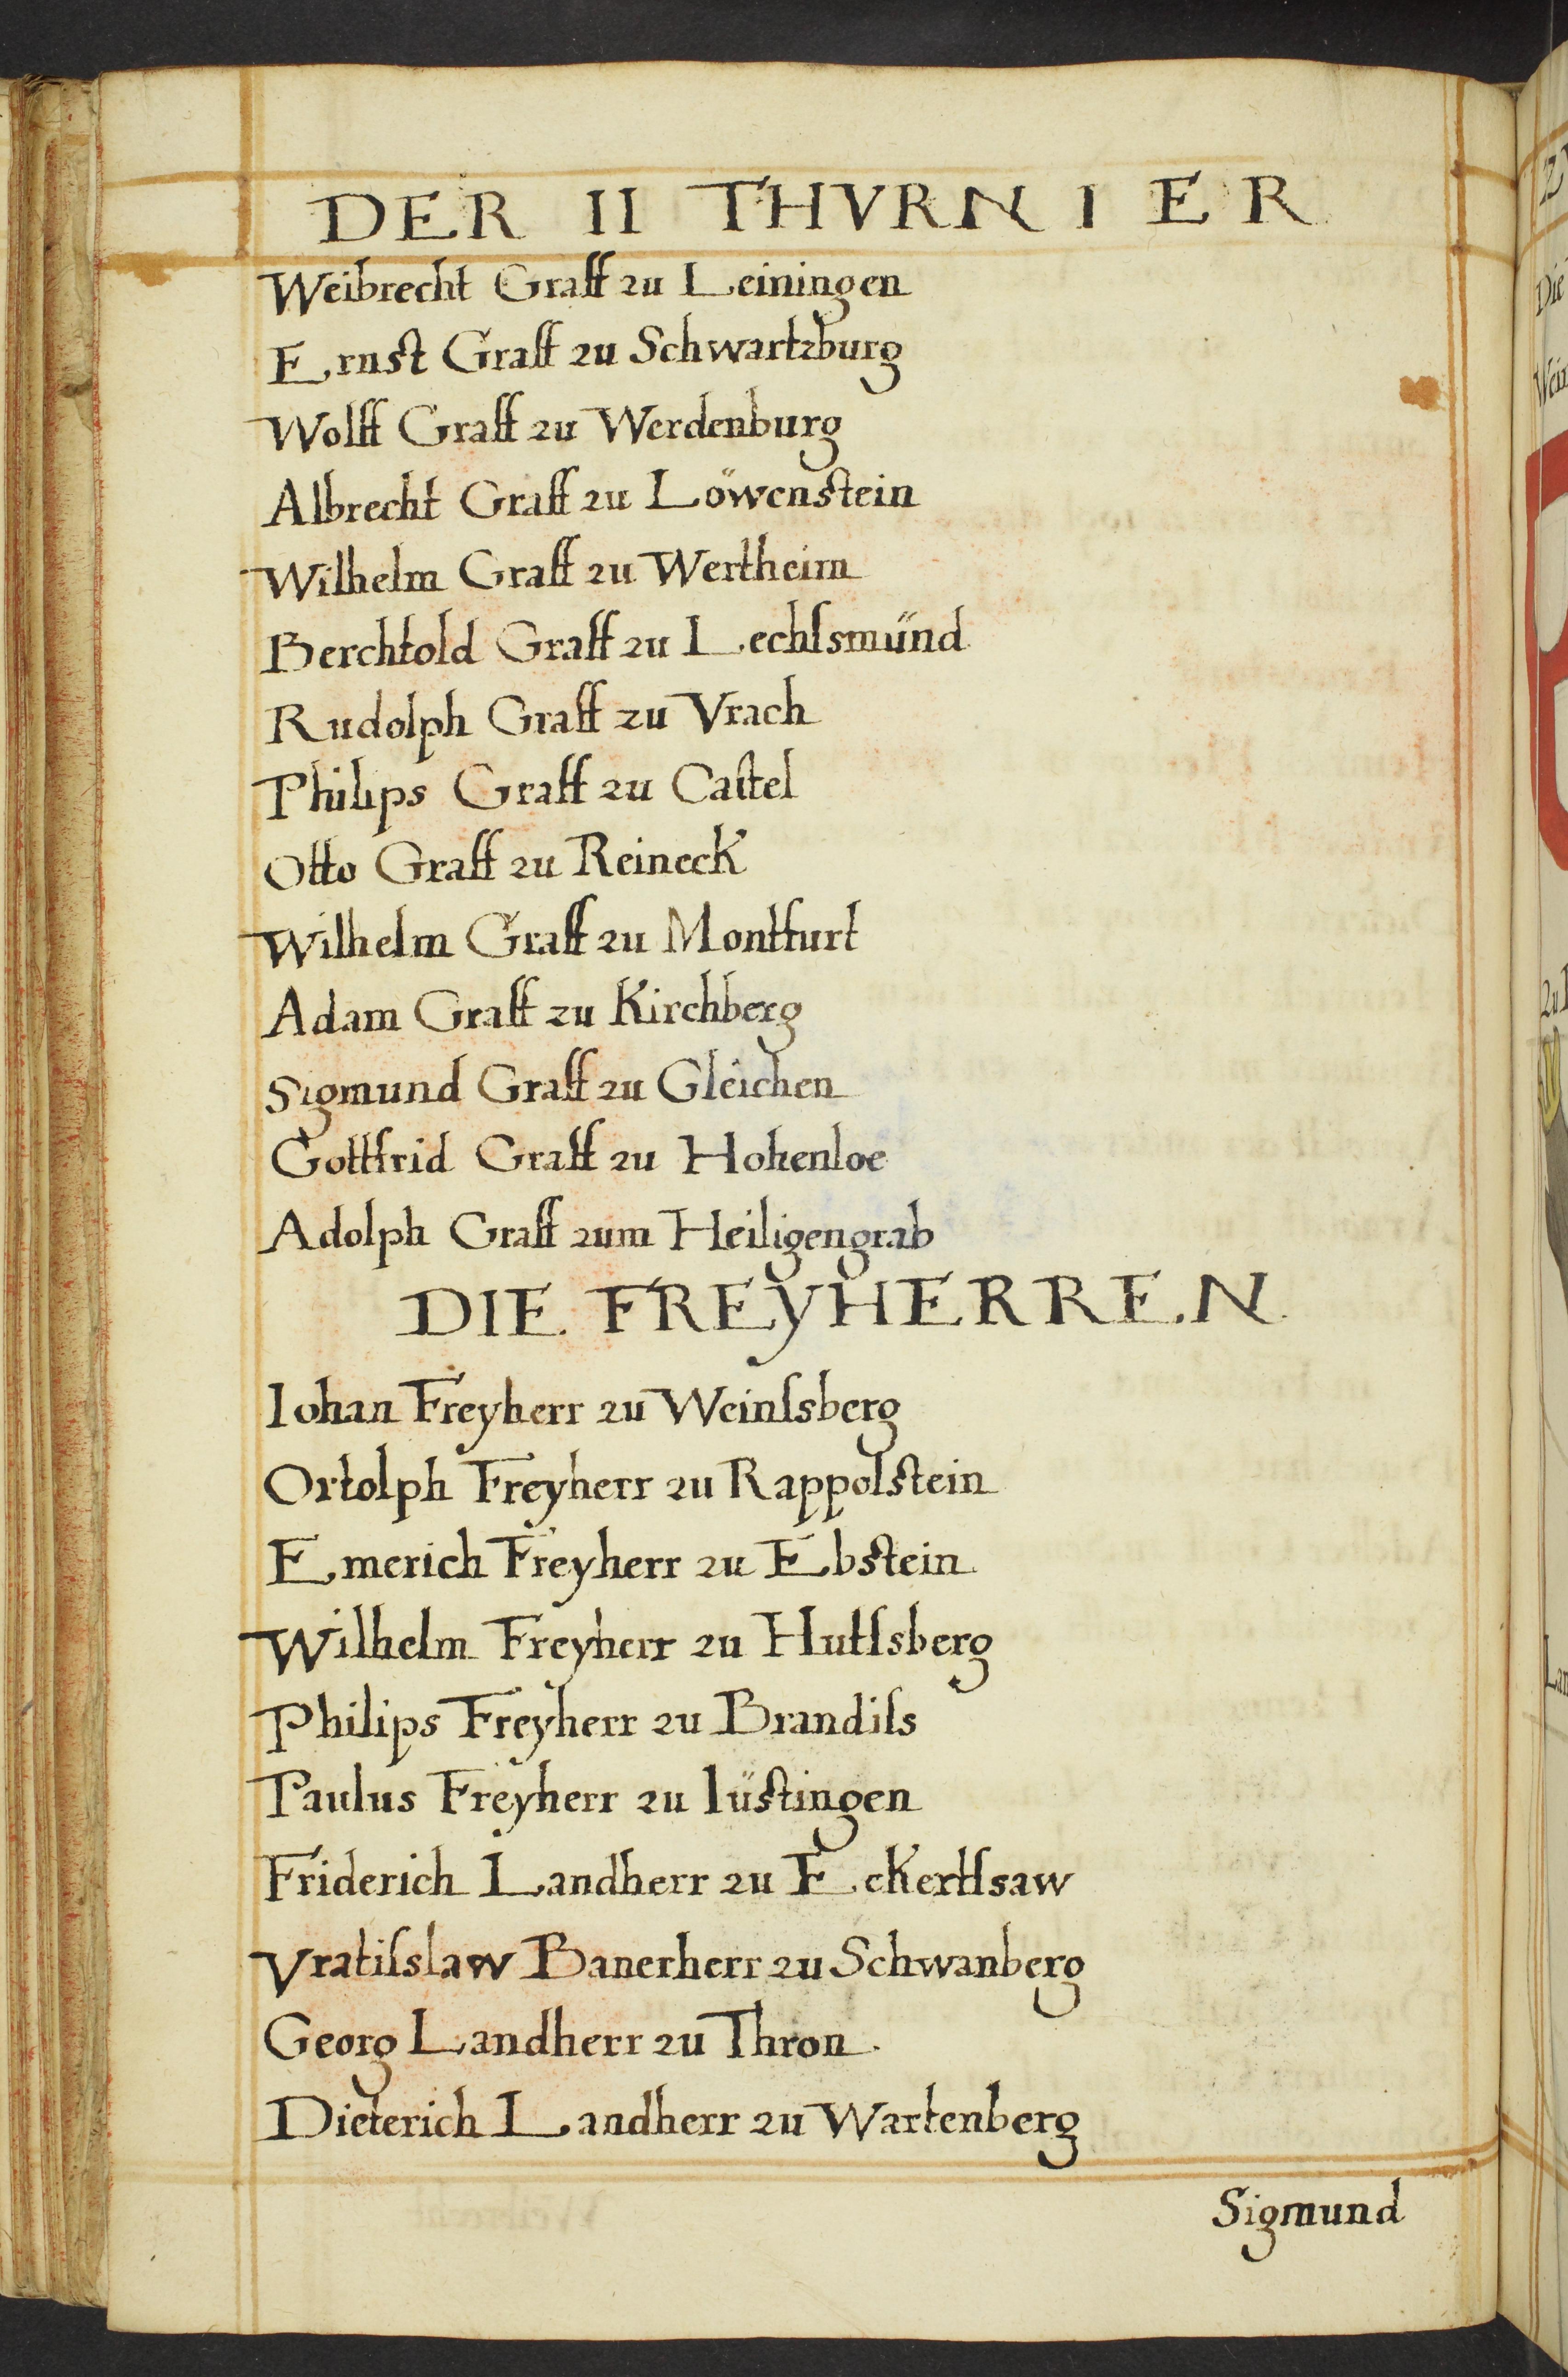 DER II THVRNIER
Weibrecht Graff zu Leiningen
Ernst Graff zu Schwartzburg
Wolff Graff zu Werdenburg
Albrecht Graff zu Löwenstein
Wilhelm Graff zu Wertheim
Berchtold Graff zu Lechſsmünd
Rudolph Graff zu Vrach
Philips Graff zu Caſtel
Otto Graff zu Reineck
Wilhelm Graff zu Montfurt
Adam Graff zu Kirchberg
Sigmund Graff zu Gleichen
Gottfrid Graff zu Hohenloe
Adolph Graff zum Heiligengrab
DIE FREyHERREN
Iohan Freyherr zu Weinſsberg
Ortolph Freyherr zu Rappolſtein
Emerich Freyherr zu Ebſtein
Wilhelm Freyherr zu Hutſsberg
Philips Freyherr zu Brandiſs
Paulus Freyherr zu lüſtingen
Friderich Landherr zu Eckertſsaw
Vratiſslaw Banerherr zu Schwanberg
Georg Landherr zu Thron.
Dieterich Landherr zu Wartenberg
Sigmund